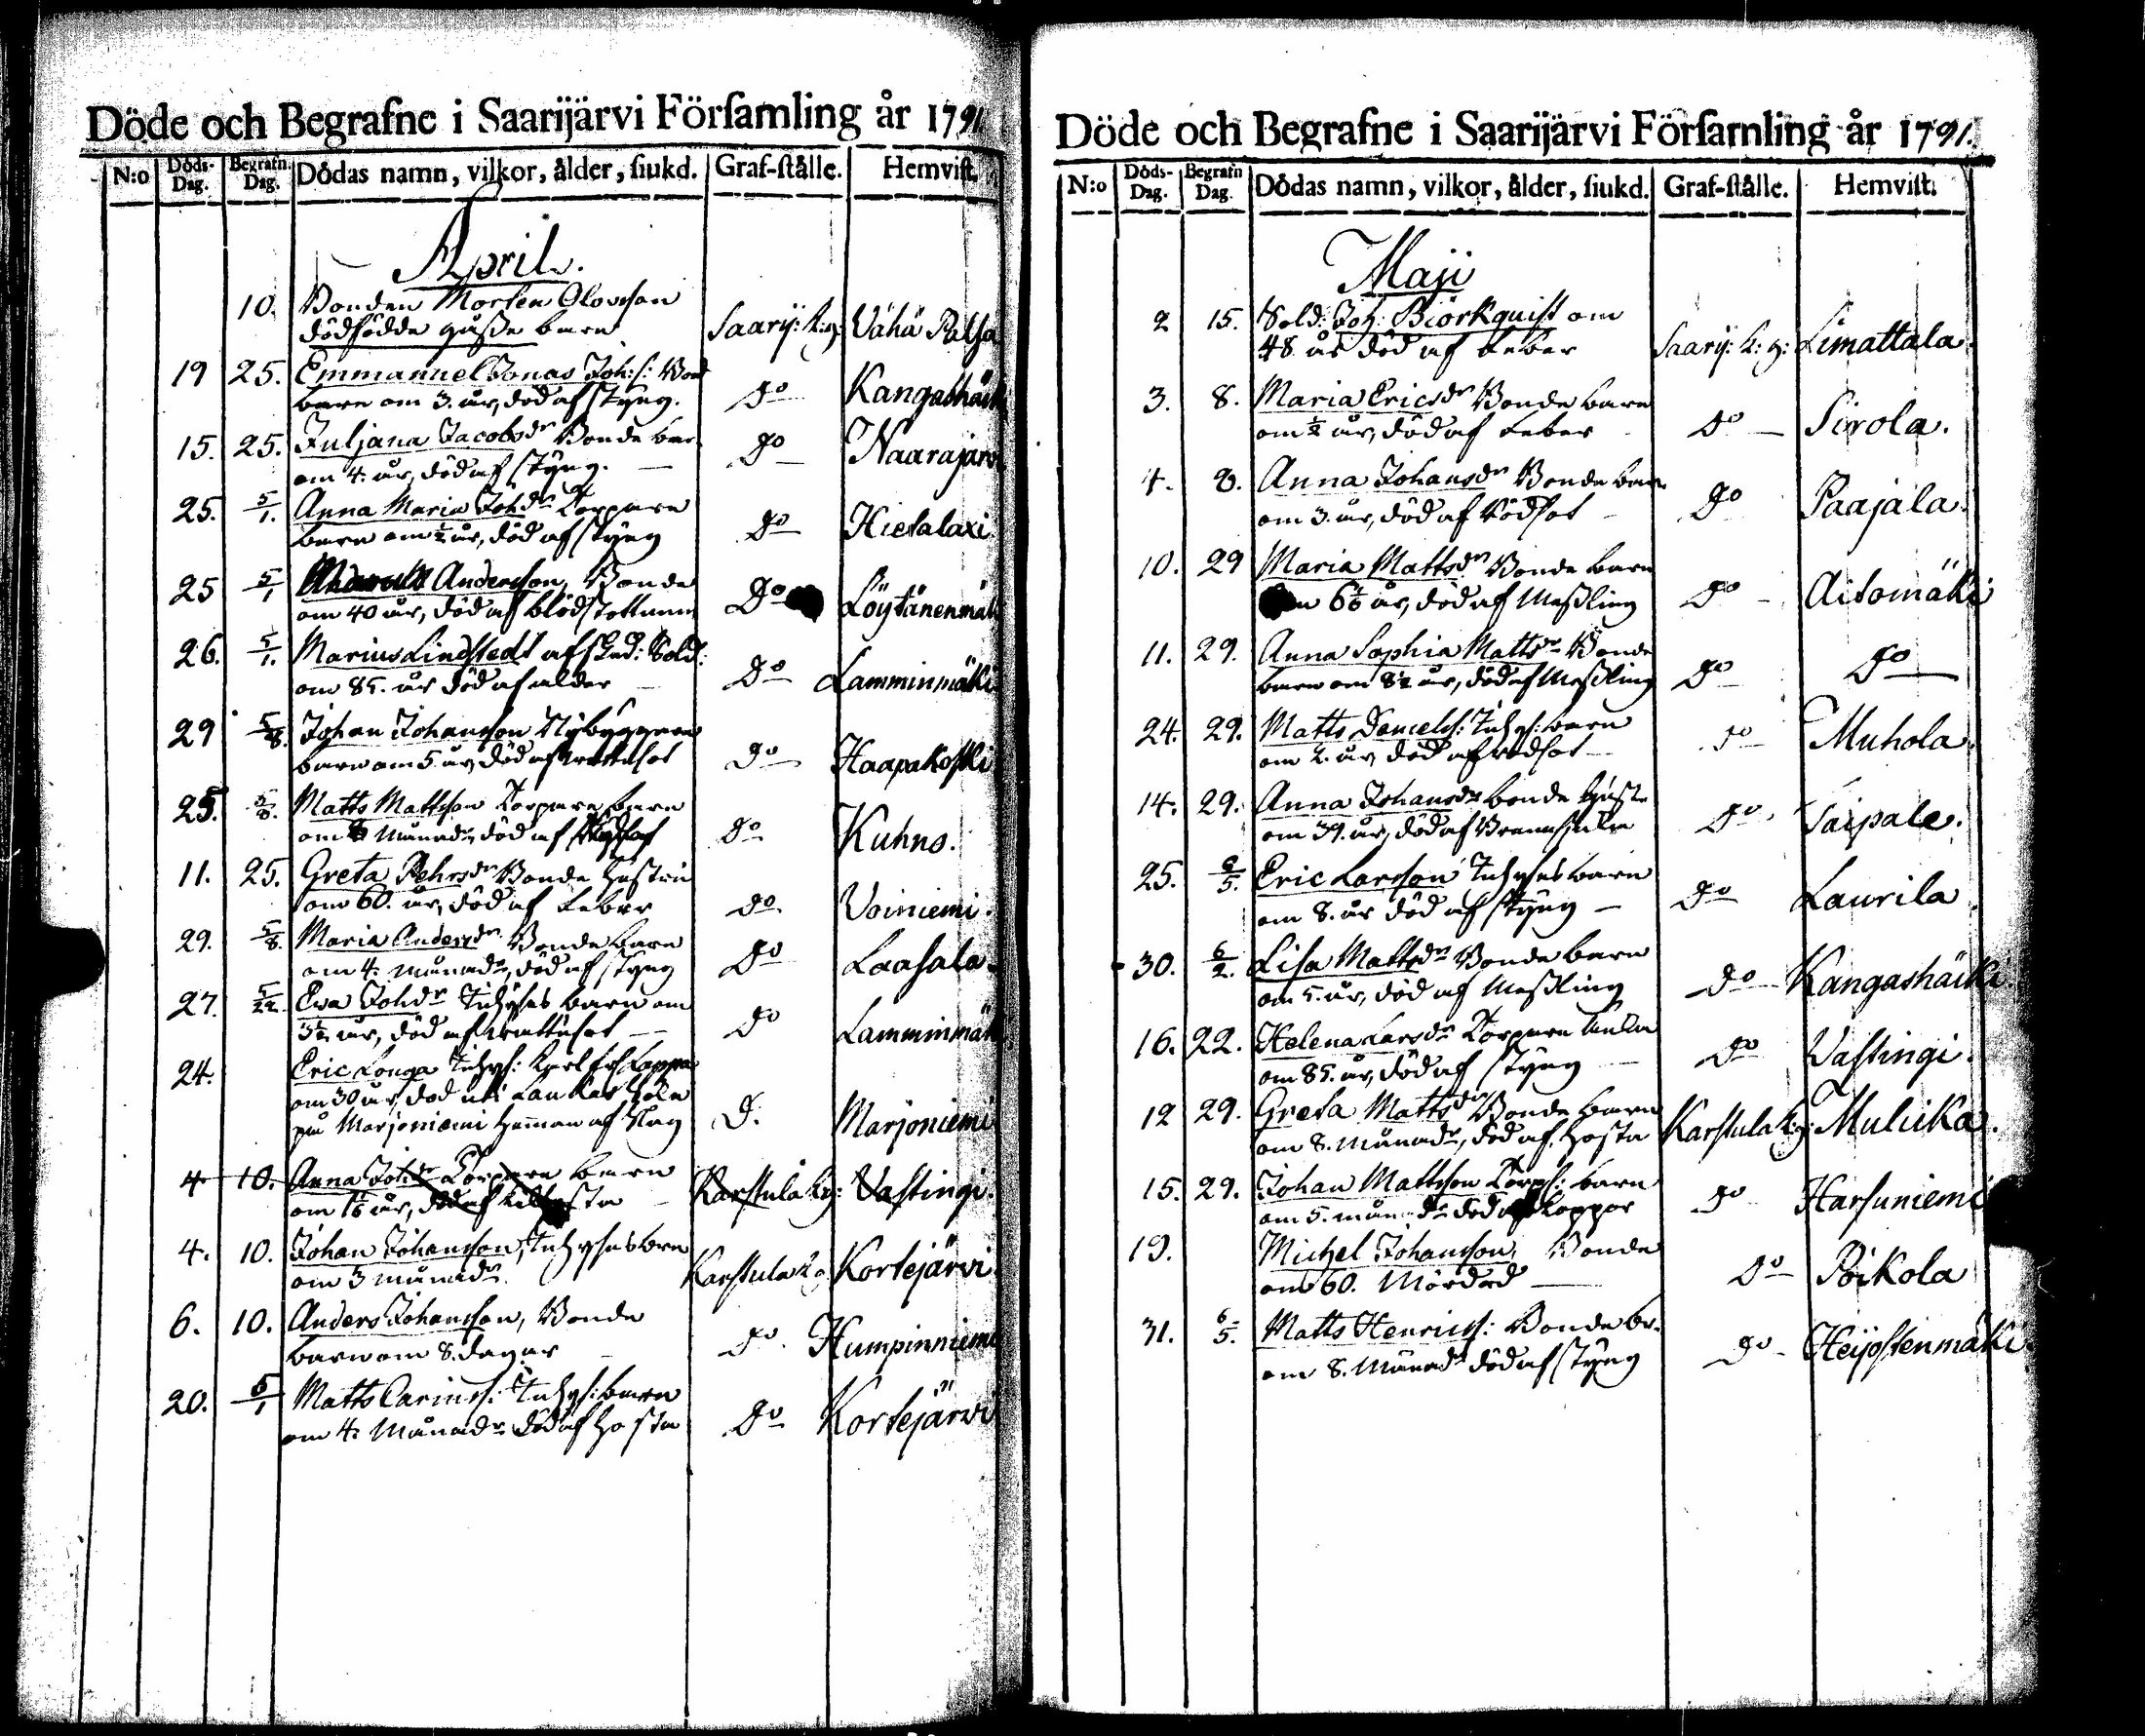 Döde och Begrafne i Saarijärvi Församling år 1791.
N:o Döds-Dag. Begrafn. Dag. Dödas namn, vilkor, ålder, siukd. Graf-ställe. Hemvist.
April.
10. Bonden Morten Olovson
dödfödda gosse barn Saarij: k:g: Vähä Palsa
19 25. Emmanuel Jonas Joh:s: Bond
barn om 3. år, död af styng. Do Kangashäk
15. 25. Juljana Jacobsdr Bonde bar
om 4. år, död af styng. Do Naarajärv
25. 5/1. Anna Maria Johdr Torpare
barn om ½ år, död af styng Do Hietalaxi
25 5/1 Anderson, Bonde
om 40 år, död af blodstörtning Do Löytänenmäk
26. 5/1. Marius Lindstedt afsked: Sold:
om 85. år död af ålder Do Lamminmäki
29 5/8. Johan Johanson Nybyggare
barn om 5 år, död af Do Haapakoski
25. 5/8. Matts Mattson Torpare barn
om månadr, död af Do Kuhno.
11. 25. Greta Pehrsdr Bonde hustru
om 60. år, död af feber do. Voiniemi.
29. 5/8. Maria Andersdr Bonde barn
om 4. månadr, död af styng Do Laasala
27. 5/22. Eva Johdr Inhyses barn om
3½ år, död af Do Lamminmäk
24. Eric Longa Inhys: Karl fr Lappo
om 30 år, död uti
på Marjoniemi hemman af slag D. Marjoniemi
4. 10. Anna Joh:dr Torpare barn
om 1½ år, död af kikhosta Karstula kg: Vastingi.
4. 10. Johan Johanson, Inhyses barn
om 3 månadr. Karstula k g Kortejärvi
6. 10. Anders Johanson, Bonde
barn om 8. dagar Do. Humpinniemi
20. 5/1 Matts Carins: Inhys: barn
om 4. Månadr död af hosta Do Kortejärvi
Döde och Begrafne i Saarijärvi Församling år 1791.
N:o Döds-Dag. Begrafn Dag. Dödas namn, vilkor, ålder, siukd. Graf-ställe. Hemvist.
Maji
2 15. Sold: Joh: Biörkquist om
48 år död af feber Saarij: k: g: Limattala
3. 8. Maria Ericsdr Bonde barn
om ½ år, död af feber Do Sirola.
4. 8. Anna Johansdr Bonde barn
om 3. år, död af Rödsot Do Paajala.
10. 29 Maria Mattsdr Bonde barn
6 år, död af Meßling Do Aitomäki
11. 29. Anna Sophia Mattsdr Bonde
barn om 8½ år, död af Meßling Do Do
24. 29. Matts Daniels: Inhys: barn
om 2. år, död af rödsot Do Muhola
14. 29. Anna Johansdr bonde hustr
om 39. år, död af Do Taipale.
25. 6/5. Eric Larsson Inhyses barn
om 8. år död af styng Do Laurila
30. 6/2. Lisa Mattsdr Bonde barn
om 5. år, död af Meßling Do Kangashäki
16. 22. Helena Larsdr Torpare änka
om 85. år, död af styng Do Vastingi.
12 29. Greta Mattsdr Bonde barn
om 8. månadr, död af hosta Karstula k:g: Mulika.
15. 29. Johan Mattson Torps: barn
om 5. månadr död af koppor Do Harsuniemi
19. Michel Johanson, Bonde
om 60. Mördad Do Poikola
31. 6/5. Matts Henrics: Bonde br.
om 8. Månadr död af styng Do Heijostenmäki